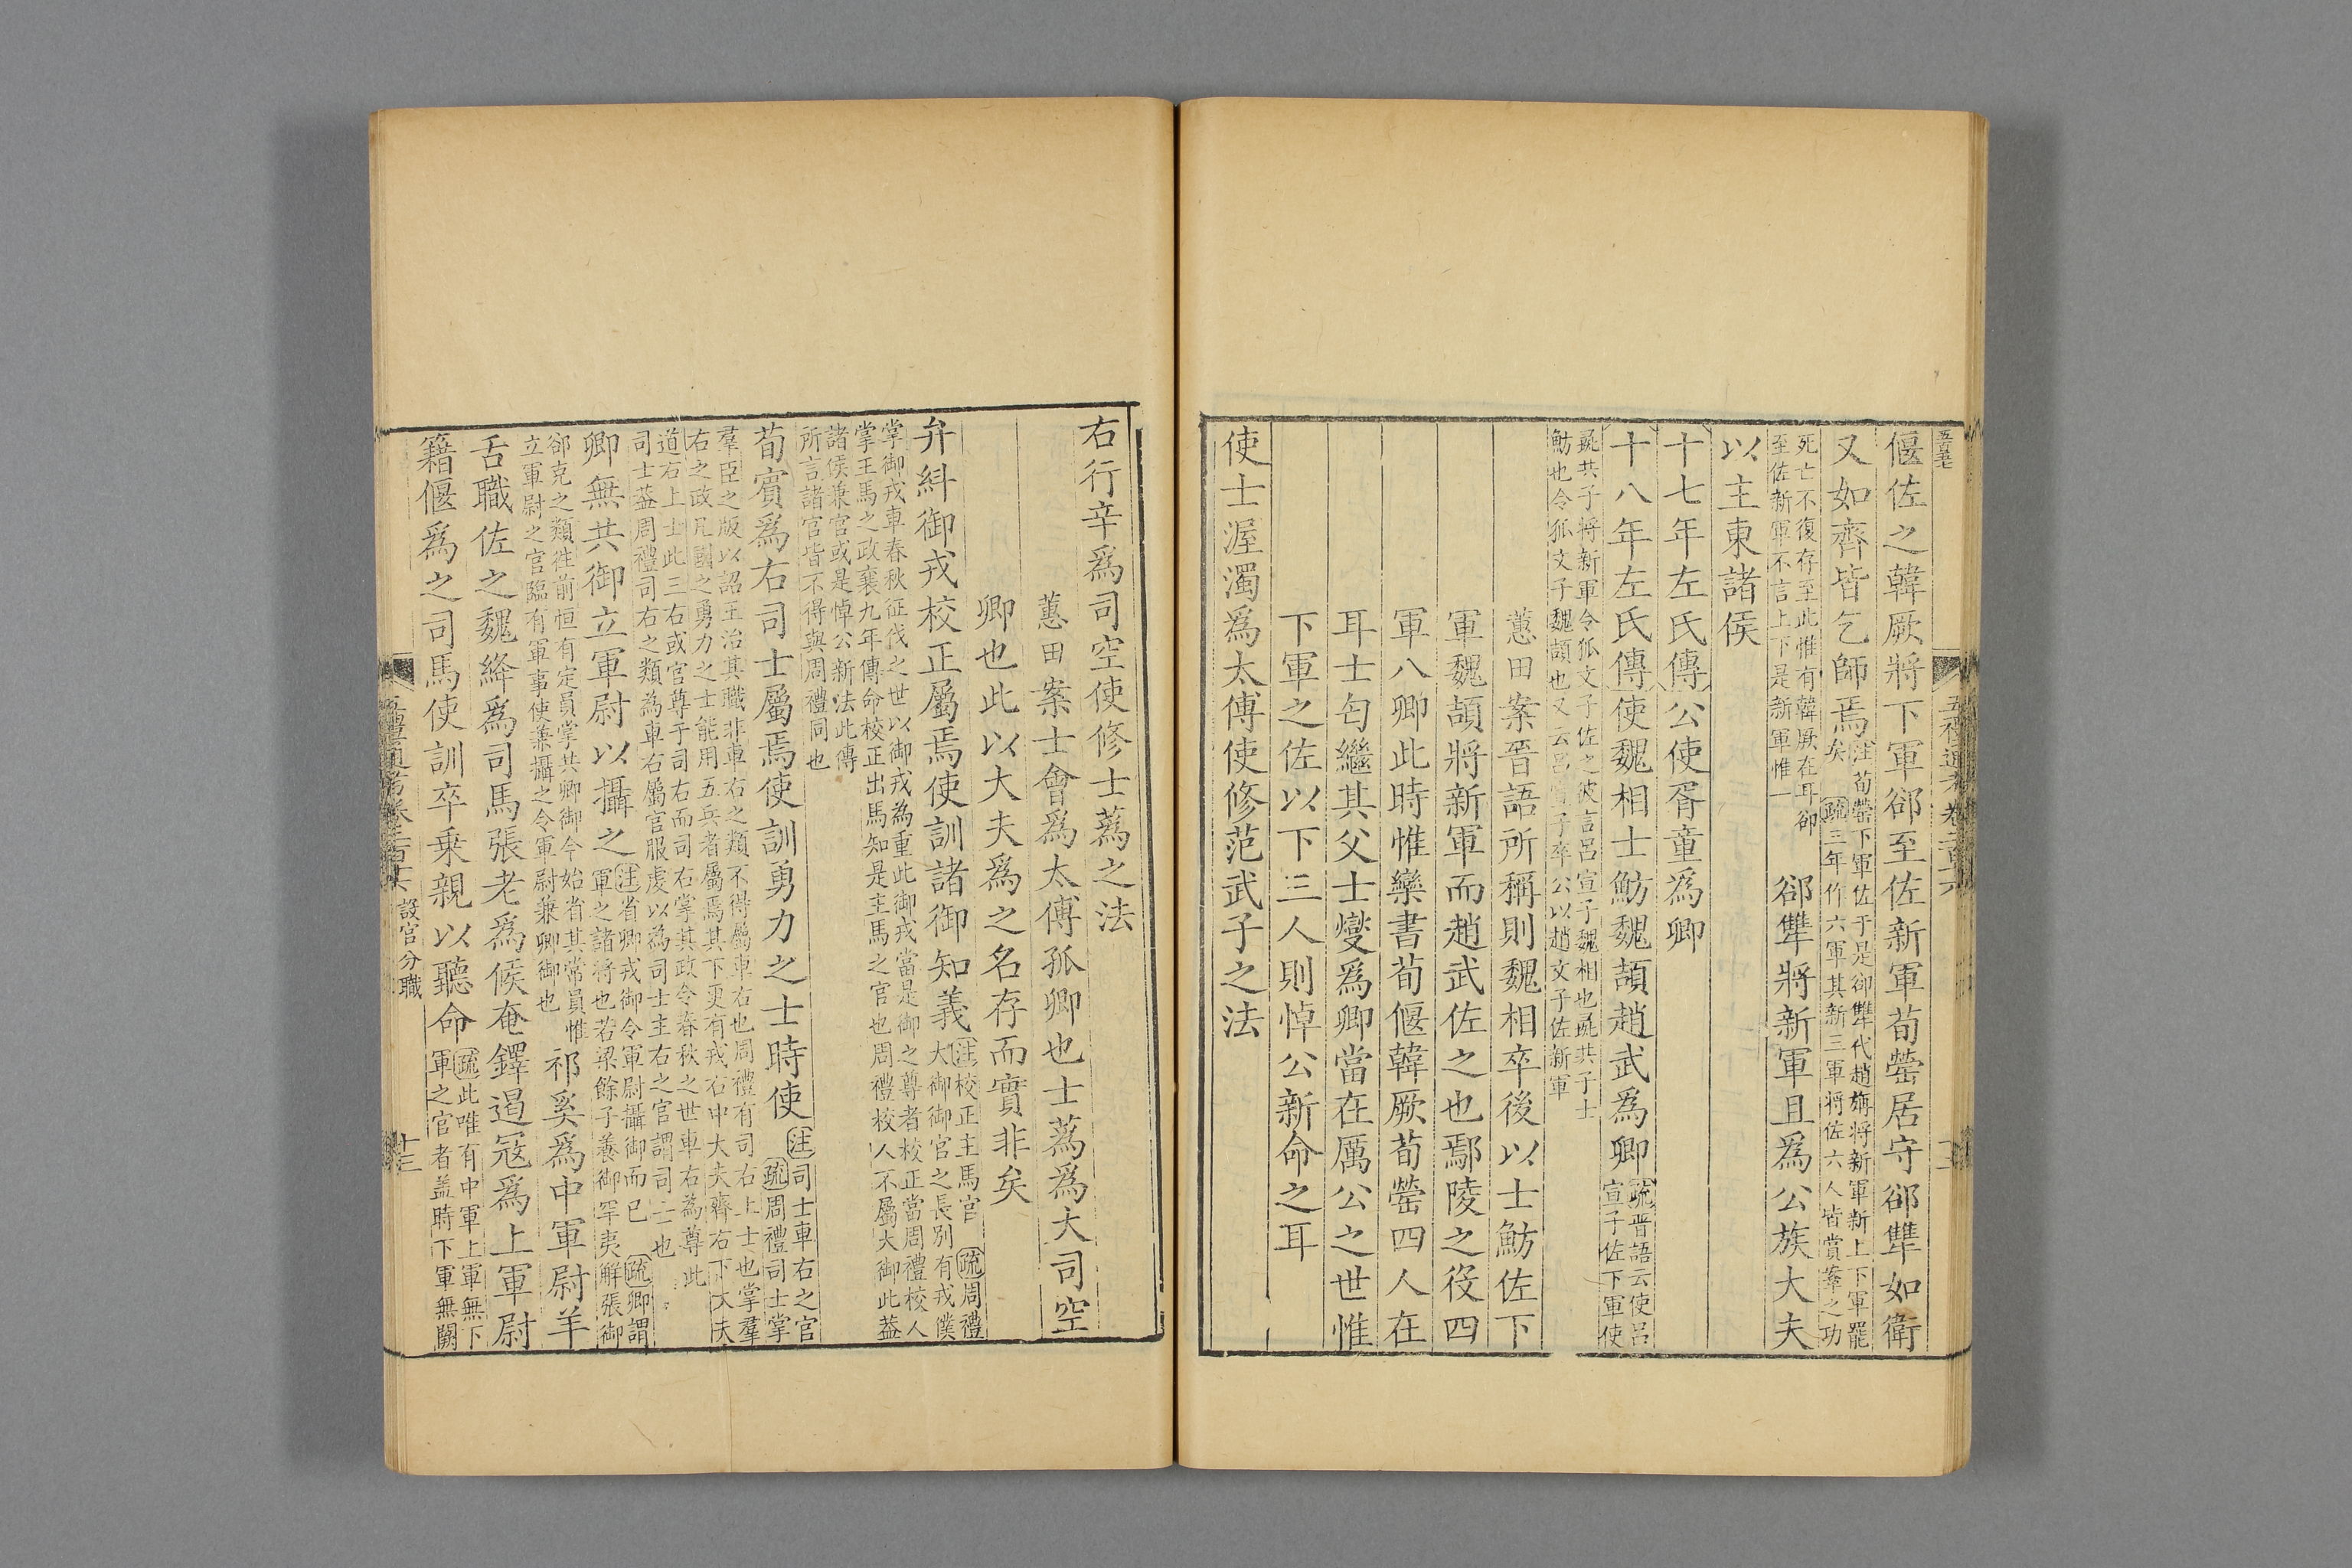 偃佐之韓厥將下軍郤至佐新軍荀罃居守郤犫如衛
又如齊皆乞師焉
注荀罃下軍佐于是郤犫代趙旃將新軍新上下軍罷
矣疏三年作六軍其新三軍將佐六人皆賞鞌之功
死亡不復存至此惟有韓厥在耳郤
至佐新軍不言上下是新軍惟一
郤犫將新軍且為公族大夫
以主東諸侯
十七年左氏傳公使胥童為卿
十八年左氏傳使魏相士魴魏頡趙武為卿
疏晉語云使呂
宣子佐下軍使
彘共子將新軍令狐文子佐之彼言呂宣子魏相也彘共子士
魴也令狐文子魏頡也又云呂宣子卒公以趙文子佐新軍
蕙田案晉語所稱則魏相卒後以士魴佐下
軍魏頡將新軍而趙武佐之也鄢陵之役四
軍八卿此時惟欒書荀偃韓厥荀罃四人在
耳士匄繼其父士燮為卿當在厲公之世惟
下軍之佐以下三人則悼公新命之耳
使士渥濁為太傅使修范武子之法
右行辛為司空使修士蔿之法
蕙田案士會為太傅孤卿也士蔿為大司空
卿也此以大夫為之名存而實非矣
弁糾御戎校正屬焉使訓諸御知義
注校正主馬官疏周禮
大御御官之長別有戎僕
掌御戎車春秋征伐之世以御戎為重此御戎當是御之尊者校正當周禮校人
掌王馬之政襄九年傳命校正出馬知是主馬之官也周禮校人不屬大御此葢
諸侯兼官或是悼公新法此傳
所言諸官皆不得與周禮同也
荀賓為右司士屬焉使訓勇力之士時使
注司士車右之官
疏周禮司士掌
羣臣之版以詔王治其職非車右之類不得屬車右也周禮有司右上士也掌羣
右之政凡國之勇力之士能用五兵者屬焉其下更有戎右中大夫齊右下大夫
道右上士此三右或官尊于司右而司右掌其政令春秋之世車右為尊此
司士葢周禮司右之類為車右屬官服虔以為司士主右之官謂司士也
卿無共御立軍尉以攝之
注省卿戎御令軍尉攝御而已疏卿謂
軍之諸將也若梁餘子養御罕夷解張御
郤克之類往前恒有定員掌共卿御今始省其常員惟
立軍尉之官臨有軍事使兼攝之令軍尉兼卿御也
祁奚為中軍尉羊
舌職佐之魏絳為司馬張老為候奄鐸遏寇為上軍尉
籍偃為之司馬使訓卒乗親以聽命
疏此唯有中軍上軍無下
軍之官者盖時下軍無闕
設官分職
十三